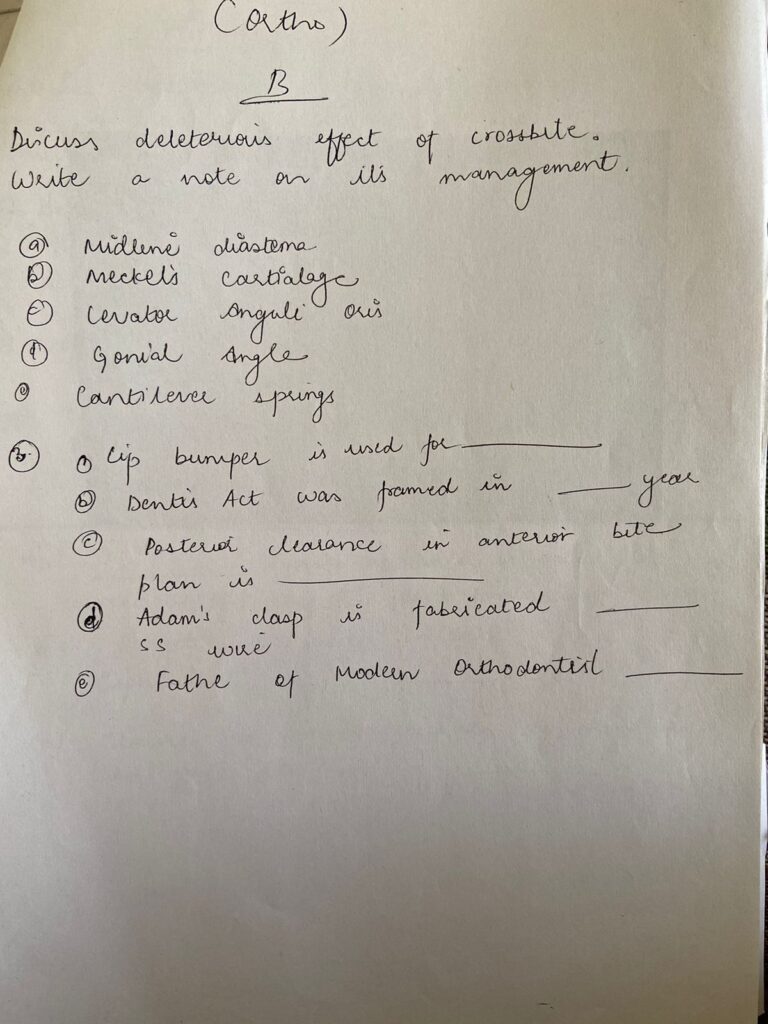 (Ortho)
B
Discuss deleterious effect of crossbite.
Write a note on it's management.
(a) Midline diastema
(b) Meckel's cartialage
(c) Levator Anguli oris
(d) Gonial Angle
(e) Cantilever springs
3. (a) Lip bumper is used for ________
(b) Dentis Act was framed in ____ year
(c) Posterior clearance in anterior bite
plan is ________
(d) Adam's clasp is fabricated ____
SS wire
(e) Fathe of Modern Orthodontist ____